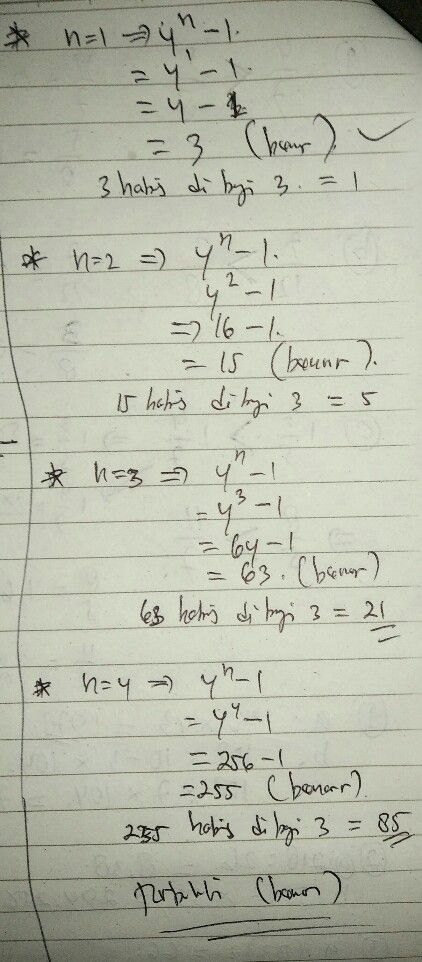 * n=1 ⇒ 4ⁿ - 1.
= 4¹ - 1.
= 4 - 1
= 3 (benar) ✓
3 habis dibagi 3. = 1
* n=2 ⇒ 4ⁿ - 1.
4² - 1
⇒ 16 - 1.
= 15 (benar).
15 habis dibagi 3 = 5
* n=3 ⇒ 4ⁿ - 1
= 4³ - 1
= 64 - 1
= 63. (benar)
63 habis dibagi 3 = 21
* n=4 ⇒ 4ⁿ - 1
= 4⁴ - 1
= 256 - 1
= 255 (benar).
255 habis dibagi 3 = 85
terbukti (benar)